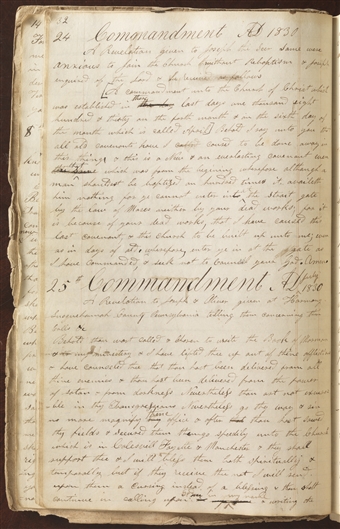 32
24 Commandment AD 1830
A Revelation given to Joseph the Seer some were
anxious to join the Church without Rebaptism & Joseph
enquired of the Lord & he received as follows
A commandment unto the Church of Christ which
was established in these last days one thousand eight
hundred & thirty on the forth month & on the sixth day of
the month which is called April Behold I say unto you that
all old covenants have I caused to be done away in
this thing & this is a new & an everlasting covenant even
which was from the begining wherefore although a
man should be baptized an hundred times it availeth
him nothing for ye cannot enter into the straight gate
by the Law of Moses neither by your dead works for it
is because of your dead works that I have caused this
last covenant & this Church to be built up unto me even
as in days of old wherefore enter ye in at the gate as
I have commanded & seek not to counsel your God Amen
25th Commandment AD July 1830
A Revelation to Joseph & Oliver given at Harmony
Susquehannah County Pennsylvania telling them concerning their
Calls &c
Behold thou wast called & chosen to write the Book of Mormon
& to my ministry & I have lifted thee up out of thy afflictions
& have counseled thee that thou hast been delivered from all
thine enemies & thou hast been delivered from the powers
of satan & from darkness Nevertheless thou art not excuse
able in thy transgressions Nevertheless go thy way & sin
no more magnify thine office & after thou hast sowed
thy fields & secured them go speedily unto the Church
which is in Colesvill Fayette & Manchester & they shall
support thee & I will bless them both spiritually &
temporally but if they receive thee not I will send
upon them a cursing instead of a blessing & thou shalt
continue in calling upon God in my name & writing the